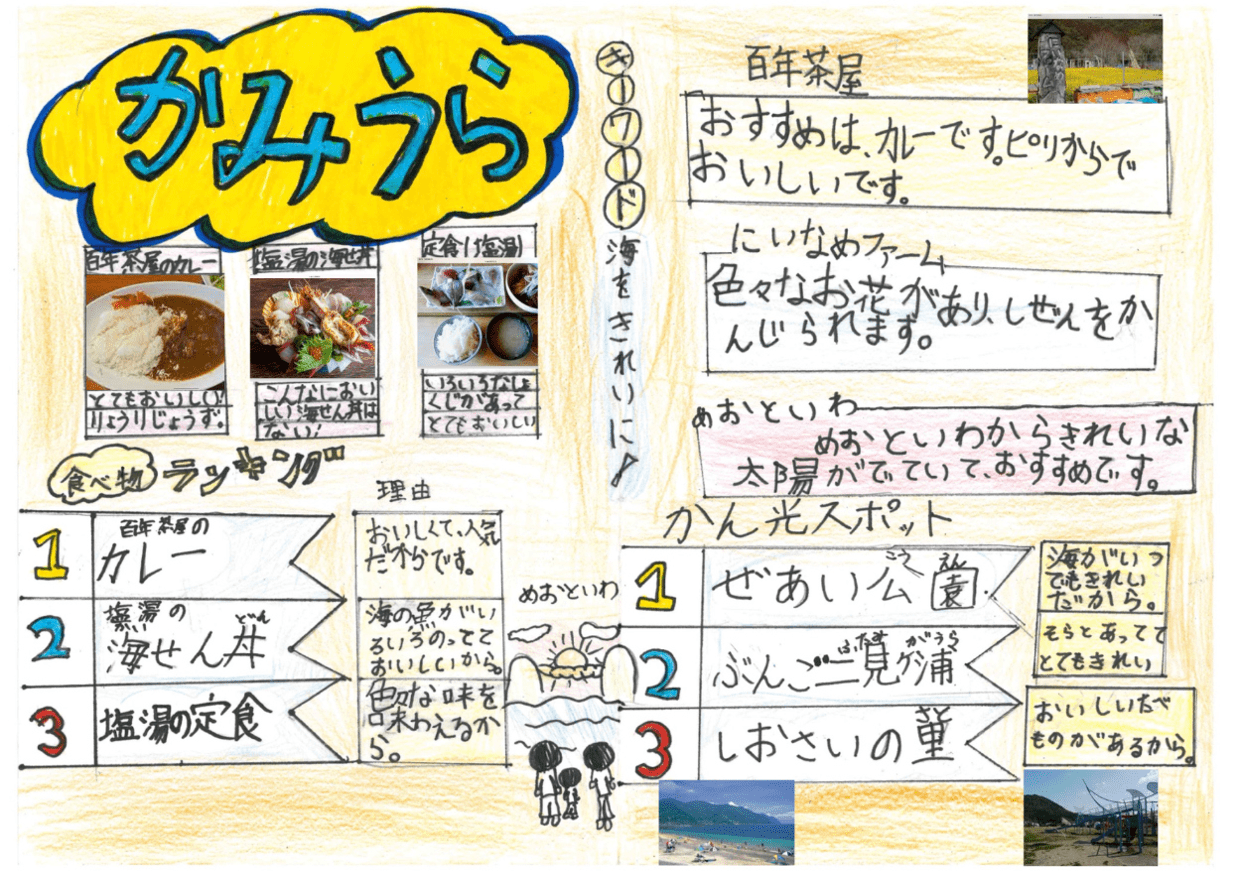 かみうら
百年茶屋のカレー
とてもおいしい!
りょうりじょうず。
塩湯の海せん丼
こんなにおい
しい海せん丼は
ない!
定食(塩湯)
いろいろなしょ
くじがあって
とてもおいしい
食べ物ランキング
理由
1 百年茶屋の
カレー
おいしくて、人気
だからです。
2 塩湯の
海せん丼
どん
海の魚がい
ろいろのってて
おいしいから。
3 塩湯の定食
色々な味を
味わえるか
ら。
めおといわ
キーワード
海をきれいに!
百年茶屋
おすすめは、カレーです。ピリからで
おいしいです。
にいなめファーム
色々なお花があり、しぜんをか
んじられます。
めおといわ
めおといわからきれいな
太陽がでていて、おすすめです。
かん光スポット
こう えん
1 ぜあい公園
海がいつ
でもきれい
だから。
ふたみ がうら
2 ぶんご二見ヶ浦
そらとあってて
とてもきれい
さと
3 しおさいの里
おいしいたべ
ものがあるから。